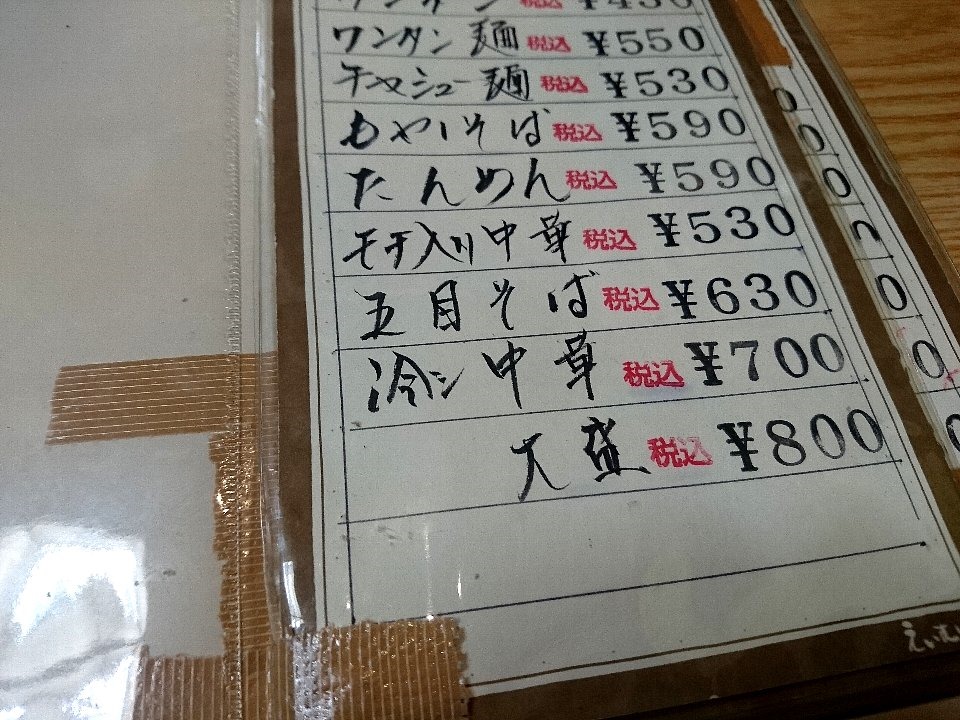 ワンタン 税込 ¥430
ワンタン麺 税込 ¥550
チャシュー麺 税込 ¥530
もやしそば 税込 ¥590
たんめん 税込 ¥590
モチ入り中華 税込 ¥530
五目そば 税込 ¥630
冷シ中華 税込 ¥700
大盛 税込 ¥800